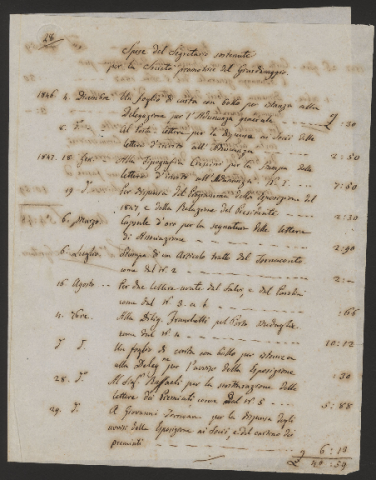 18
Spese del Segretario sostenute
per la Società promotrice del Giardinaggio.
1846. 4. Dicembre Un foglio di carta con bollo per istanza alla
Delegazione per l'Adunanza generale - - : 30
5. Al Porta-lettere per la dispensa ai Socj delle
lettere d'invito all'Adunanza - - 2 : 50
1847. 18. Gen. Alla Tipografia per la stampa delle
lettere d'invito all'Adunanza N. 1. - - 7 : 50
19 Per dispensa del Programma della Esposizione del
1847, e della Relazione del Presidente - - 2 : 30
6. Marzo Capsule d'oro per la segnatura delle lettere
di - - 2 : 90
6. Luglio Stampa di un Articolo tratto dal
come dal N. 2 - - 2 : -
16 Agosto - - Per due lettere venute da e da
come dal N. 3. e 4. - - : 66
4. Nove. Alla Dilig. Franchetti pel Porto Medaglie
come dal N. 4 - - 10 : 12
7 Un foglio di carta con bollo per istanza
alla Delegne per l'avviso della Esposizione - : 30
28. Al Raffaeli per la delle
lettere dei Premiati come dal N. 5 - - 5 : 88
29. A Giovanni per la dispensa degli
avvisi della Esposizione ai Socj, e del dei
premiati - - 6 : 18
£ 40 : 59